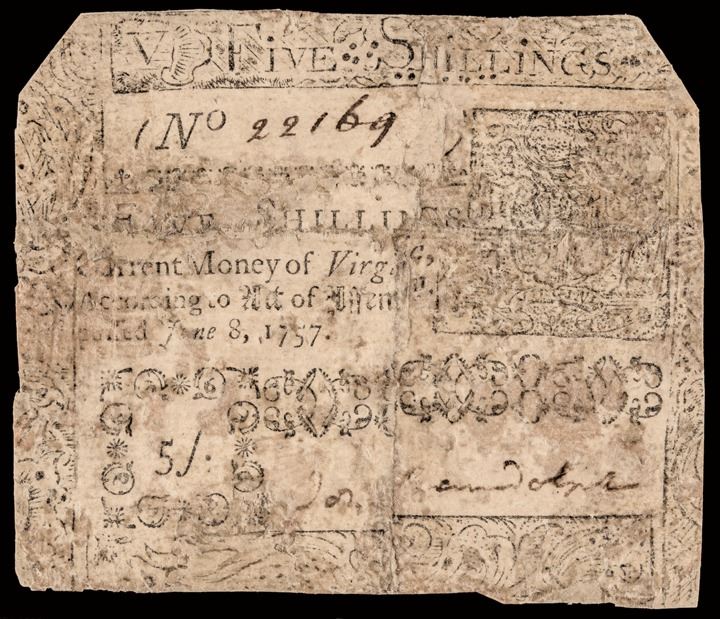 V FIVE SHILLINGS
No 22169
FIVE SHILLINGS
Current Money of Virg
According to Act of Assem
June 8, 1757.
5/.
Randolph